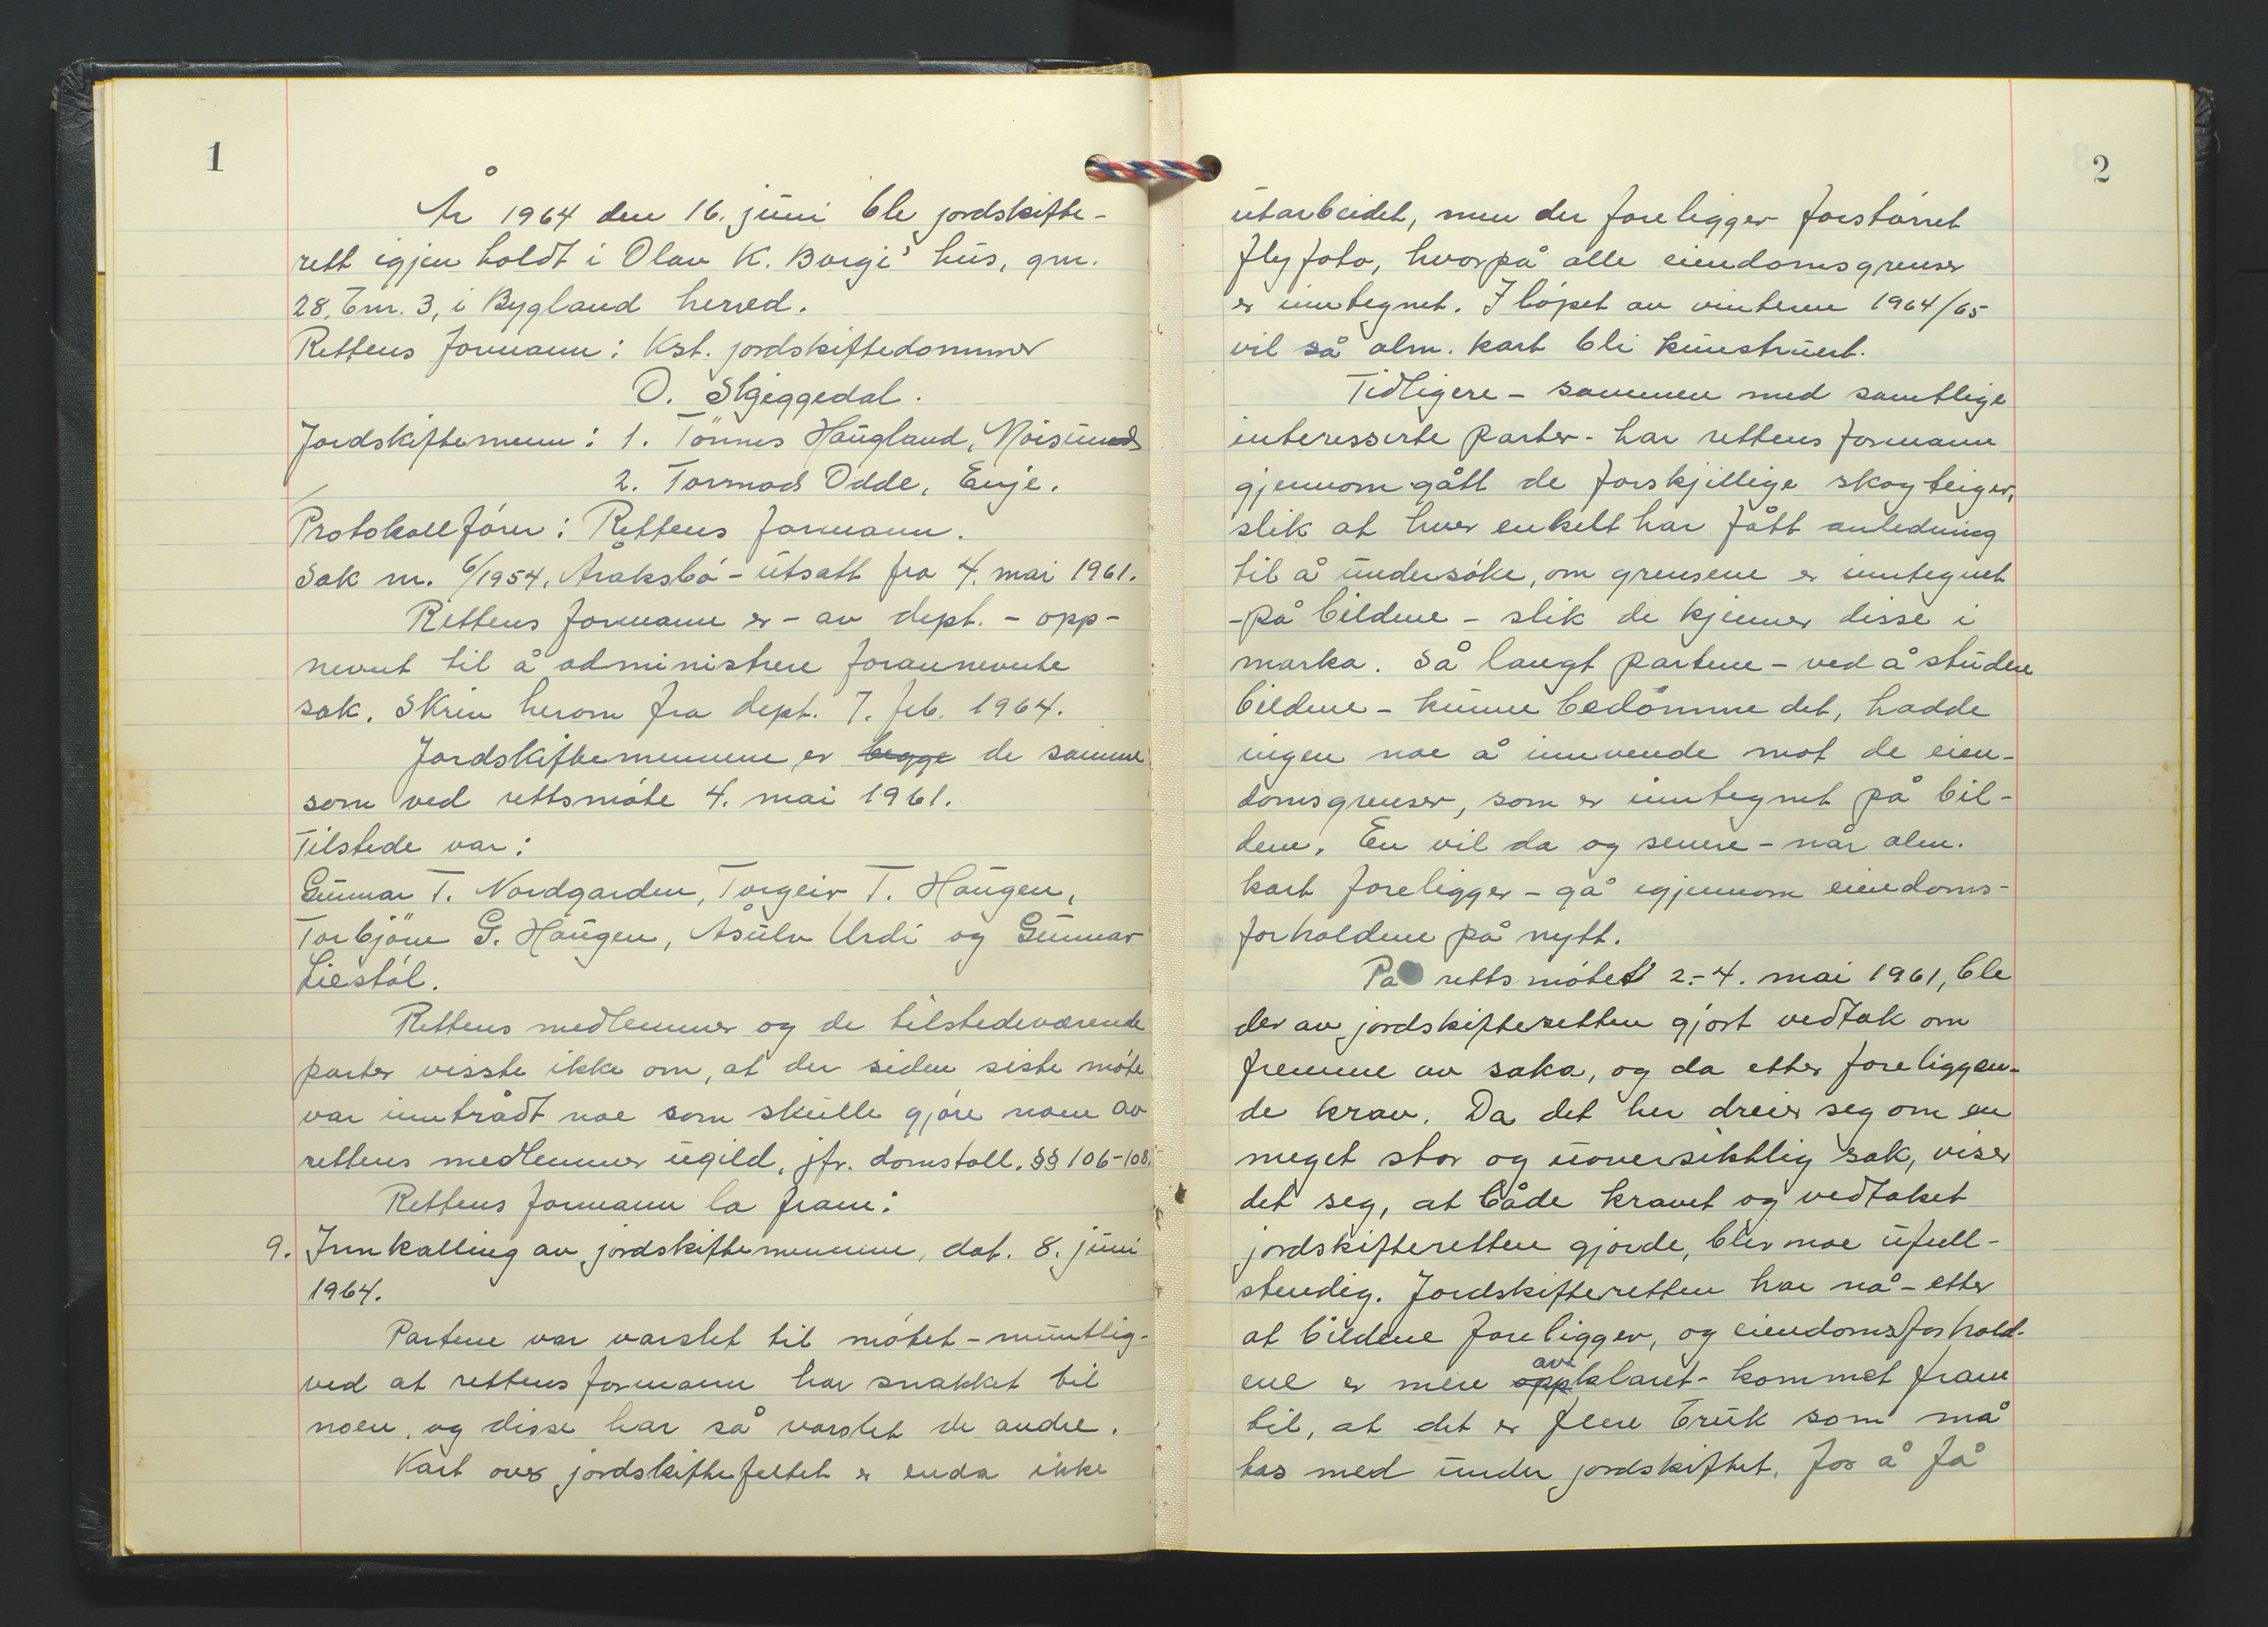 1
År 1964 den 16. juni ble jordskifte-
rett igjen holdt i Olav K. Borgi's hus, gnr.
28, bnr. 3, i Bygland herred.
Rettens formann: Kst. jordskiftedommer
O. Skjeggedal.
Jordskiftemenn: 1. Tönnes Haugland, Moisund
2. Tormod Odde, Evje.
Protokollfører: Rettens formann.
Sak nr. 6/1954, Åraksbó - utsatt fra 4. mai 1961.
Rettens formann er - av dept. - opp-
nevnt til å administrere forannevnte
sak. Skriv herom fra dept. 7. feb. 1964.
Jordskiftemennene er begge de samme
som ved rettsmóte 4. mai 1961.
Tilstede var:
Gunnar T. Nordgarden, Torgeir T. Haugen,
Torbjörn G. Haugen, Åsulv Urdi og Gunnar
Liestól.
Rettens medlemmer og de tilstedeværende
parter visste ikke om, at der siden siste móte
var inntrådt noe som skulle gjóre noen av
rettens medlemmer ugild, jfr. domstoll. §§ 106-108.
Rettens formann la fram:
9. Innkalling av jordskiftemennene, dat. 8. juni
1964.
Partene var varslet til mótet - muntlig -
ved at rettens formann har snakket til
noen, og disse har så varslet de andre.
Kart over jordskiftefeltet er enda ikke
2
utarbeidet, men der foreligger forstórret
flyfoto, hvorpå alle eiendomsgrenser
er inntegnet. I lópet av vinteren 1964/65
vil så alm. kart bli kunstruert.
Tidligere - sammen med samtlige
interesserte parter - har rettens formann
gjennomgått de forskjillige skogteiger,
slik at hver enkelt har fått anledning
til å undersóke, om grensene er inntegnet
- på bildene - slik de kjenner disse i
marka. Så langt partene - ved å studere
bildene - kunne bedómme det, hadde
ingen noe å innvende mot de eien-
domsgrenser, som er inntegnet på bil-
dene. En vil da og senere - når alm.
kart foreligger - gå igjennom eiendoms-
forholdene på nytt.
På rettsmótet 2.-4. mai 1961, ble
der av jordskifteretten gjort vedtak om
fremme av saka, og da etter foreliggen-
de krav. Da det her dreier seg om en
meget stor og uoversiktlig sak, viser
det seg, at både kravet og vedtaket
jordskifteretten gjorde, blir noe ufull-
stendig. Jordskifteretten har nå - etter
at bildene foreligger, og eiendomsforhold-
av
ene er mere oppklaret - kommet fram
til, at det er flere bruk som må
tas med under jordskiftet, for å få